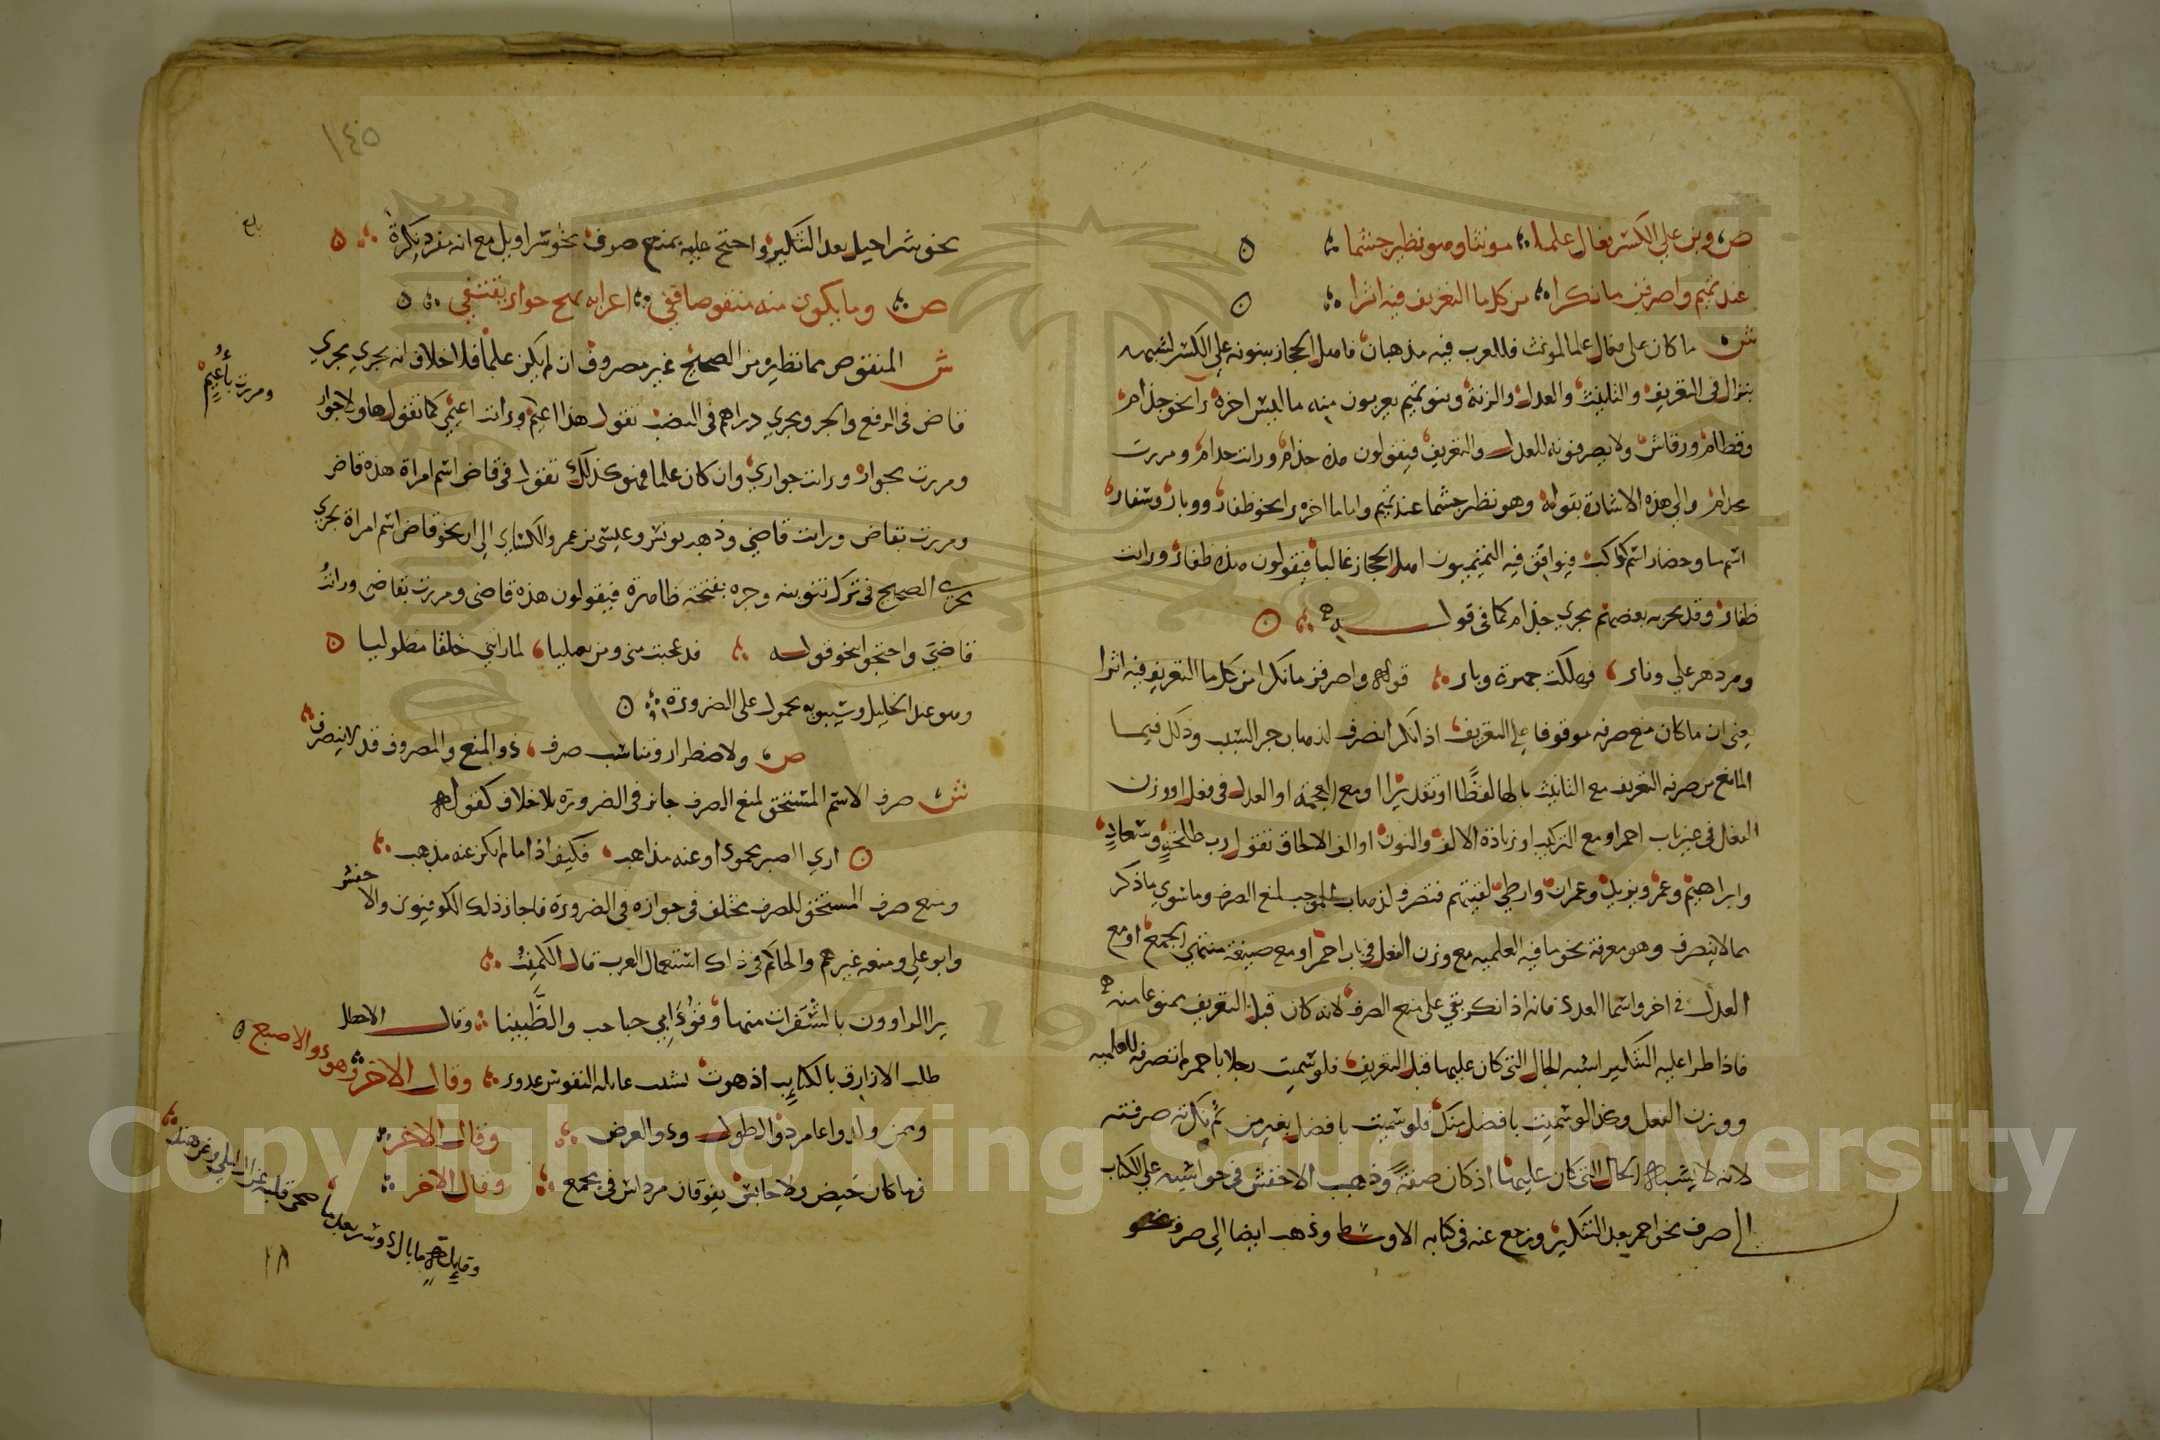 ص وبن على الكسر فعال علما مونثا وهو نظير جشما
عند تميم واصرفن ما نكرا من كل ما التعريف فيه اثرا
ش ما كان على فعال علما لمونث فللعرب فيه مذهبان فاهل الحجاز يبنونه على الكسر لشبهه
بنزال في التعريف والتانيث والعدل والزنة وبنو تميم يعربون منه ما ليس اخره را نحو حذام
وقطام ورقاش ولا يصرفونه للعدل والتعريف فيقولون هذه حذام ورات حذام ومررت
بحذام والى هذه الاشارة بقوله وهو نظير جشما عند تميم واما ما اخره را نحو ظفار ووبار وسفار
اسم ما وحضار اسم كوكب فيوافق فيه التميميون اهل الحجاز غالبا فيقولون هذه ظفار ورايت
ظفار وقد يجريه بعضهم مجرى حذام كما في قوله
ومر دهر على وبار فهلكت جهرة وبار قوله واصرفن ما نكرا من كل ما التعريف فيه اثرا
يعني ان ما كان منع صرفه موقوفا على التعريف اذا نكر انصرف لذهاب جزء السبب وذلك فيما
المانع من صرفه التعريف مع التانيث بالها لفظا او تقديرا او مع العجمة او العدل في فعل او وزن
الفعل في غير باب احمر او مع التركيب او زيادة الالف والنون او الف الالحاق تقول رب طلحة وسعاد
وابراهيم وعمر ويزيد وعمران وارطى لقيتهم فتصرف لذهاب الموجب لمنع الصرف وما سوى ما ذكر
مما لا ينصرف وهو معرفة نحو ما فيه العلمية مع وزن الفعل في باب احمر او مع صيغة منتهى الجمع او مع
العدل في اخر واسما العدد فانه اذا نكر بقي على منع الصرف لانه كان قبل التعريف ممنوعا منه
فاذا طرا عليه التنكير اشبه الحال التي كان عليها قبل التعريف فلو سميت رجلا باحمر لم تصرفه للعلمية
ووزن الفعل وكذا لو سميت بافضل منك فلو سميت بافضل بغير من ثم نكرته صرفته
لانه لا يشبه الحال التي كان عليها اذ كان صفة وذهب الاخفش في حواشيه على الكتاب
الى صرف نحو احمر بعد التنكير ورجع عنه في كتابه الاوسط وذهب ايضا الى صرف
١٤٥
بلغ
نحو شراحيل بعد التنكير واحتج عليه بمنع صرف نحو سراويل مع انه مفرد نكرة
ص وما يكون منه منقوصا ففي اعرابه نهج جوار يقتفي
ش المنقوص مما نظيره من الصحيح غير مصروف ان لم يكن علما فلا خلاف انه يجري مجرى
قاض في الرفع والجر ومجرى دراهم في النصب تقول هذا اعيم ورات اعيمي كما تقول هاولا جوار
ومررت باعيم
ومررت بجوار ورات جواري وان كان علما فهو كذلك تقول في قاض اسم امراة هذه قاض
ومررت بقاض ورات قاضي وذهب يونس وعيسى بن عمر والكساي الى ان نحو قاض اسم امراة يجري
مجرى الصحيح في ترك تنوينه وجره بفتحة ظاهرة فيقولون هذه قاضي ومررت بقاضي ورات
قاضي واحتجوا بنحو قوله قد عجبت مني ومن يعيليا لما راتني خلقا مقلوليا
وهو عند الخليل وسيبويه محمول على الضرورة
ص ولاضطرار وتناسب صرف ذو المنع والمصروف قد لا ينصرف
ش صرف الاسم المستحق لمنع الصرف جائز في الضرورة بلا خلاف كقوله
ارى الصبر محمودا وعنه مذاهب فكيف اذا ما لم يكن عنه مذهب
ومنع صرف المستحق للصرف مختلف في جوازه في الضرورة فاجاز ذلك الكوفيون والاخفش
وابو علي ومنعه غيرهم والحاكم في ذلك استعمال العرب قال الكميت
يرى الراوون بالشفرات منها وقود ابي حباحب والظبينا وقال الاخطل
طلب الازارق بالكتايب اذ هوت بشبيب غايلة النفوس غدور وقال الاخر وهو ذو الاصبع
وممن ولدوا عامر ذو الطول وذو العرض وقال الاخر
فما كان حصن ولا حابس يفوقان مرداس في مجمع وقال الاخر
وقايلة ما بال دوسر بعدنا صحى قلبه عن ال ليلى وعن هند
Copyright © King Saud University